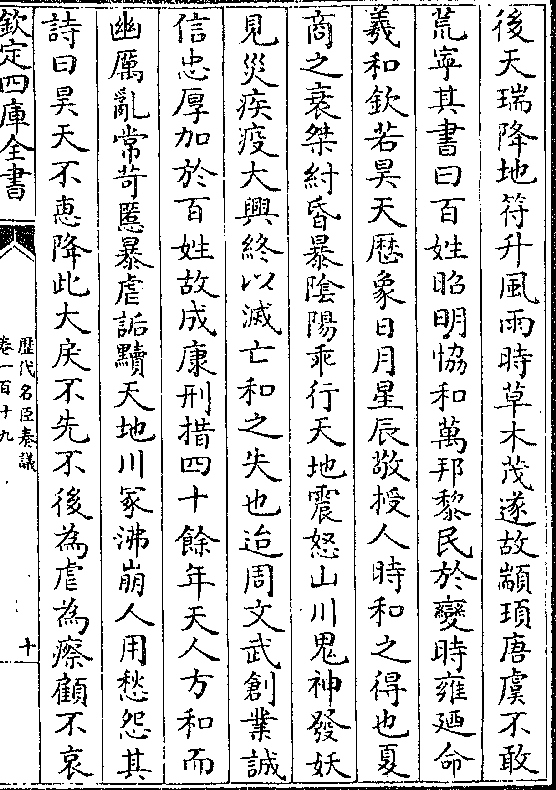 後天瑞降地符升風雨時草木茂遂故顓頊唐虞不敢
荒寧其書曰百姓昭明恊和萬邦黎民於變時雍廼命
羲和欽若昊天厯象日月星辰敬授人時和之得也夏
商之衰桀紂昏暴陰陽乖行天地震怒山川鬼神發妖
見災疾疫大興終以滅亡和之失也迨周文武創業誠
信忠厚加於百姓故成康刑措四十餘年天人方和而
幽厲亂常苛慝暴虐詬黷天地川冢沸崩人用愁怨其
詩曰昊天不惠降此大戾不先不後為虐為瘵顧不哀
欽定四庫全書
歷代名臣奏議
卷一百十九
十